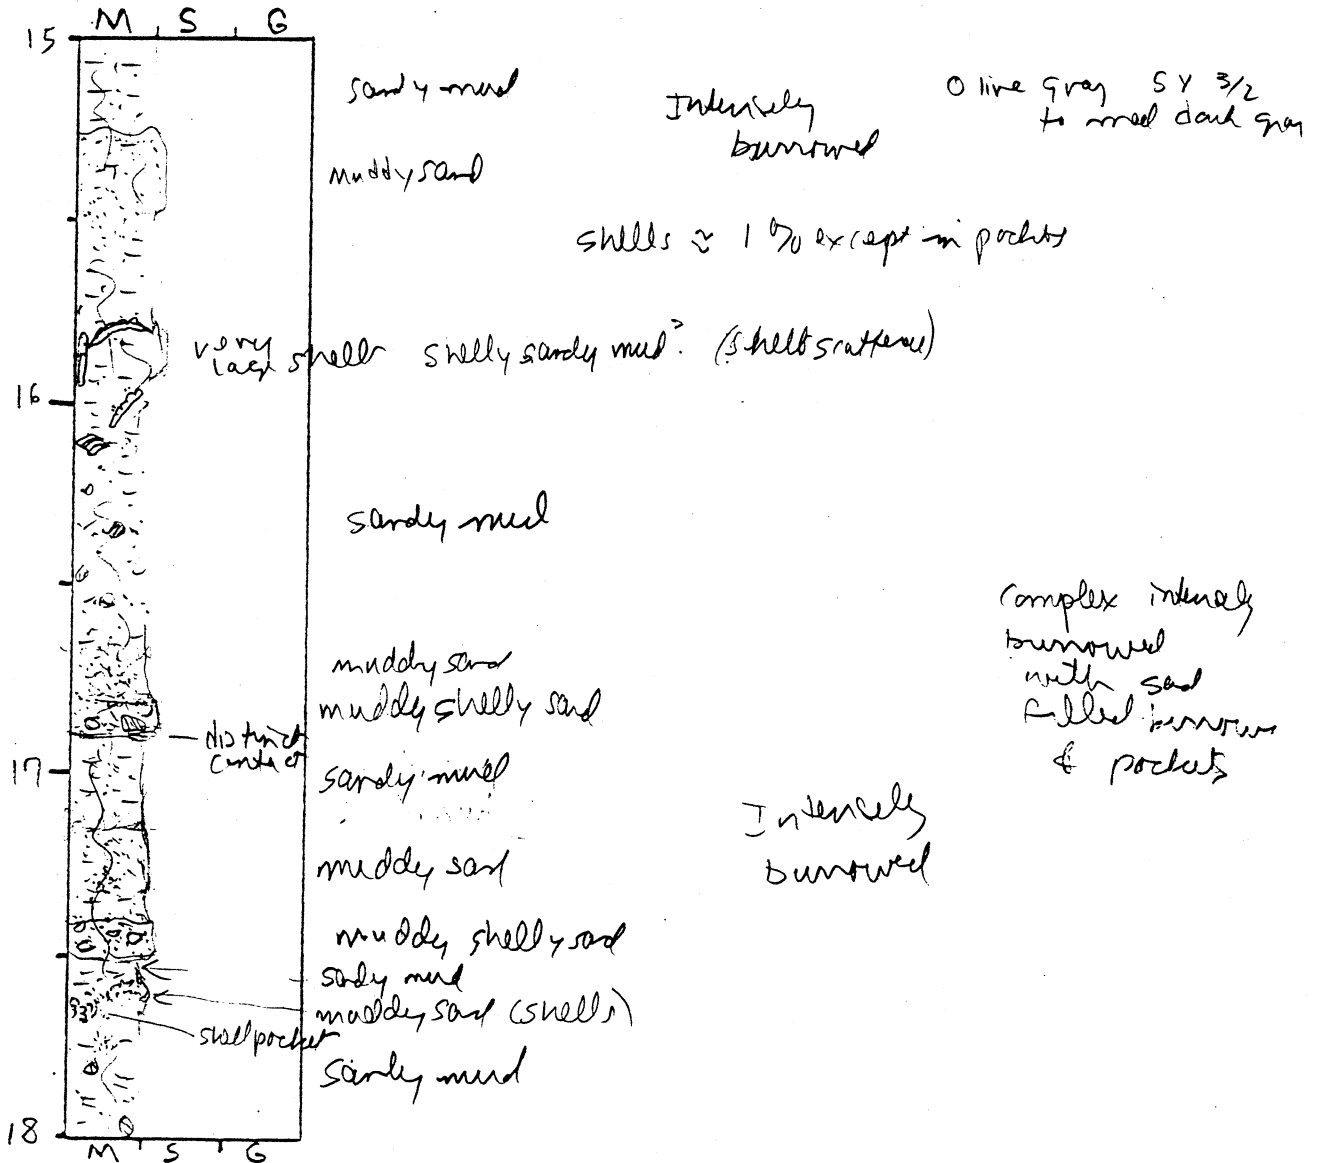 M S G
15
sandy mud
Intensely
burrowed
Olive Gray 5Y 3/2
to med dark gray
muddy sand
shells ≈ 1% except in pockets
very
large shells
shelly sandy mud? (shells scattered)
16
sandy mud
complex intensely
burrowed
with sand
filled burrows
& pockets
muddy sand
muddy shelly sand
distinct
contact
17
sandy mud
Intensely
burrowed
muddy sand
muddy shelly sand
sandy mud
muddy sand (shells)
shell pocket
sandy mud
18
M S G